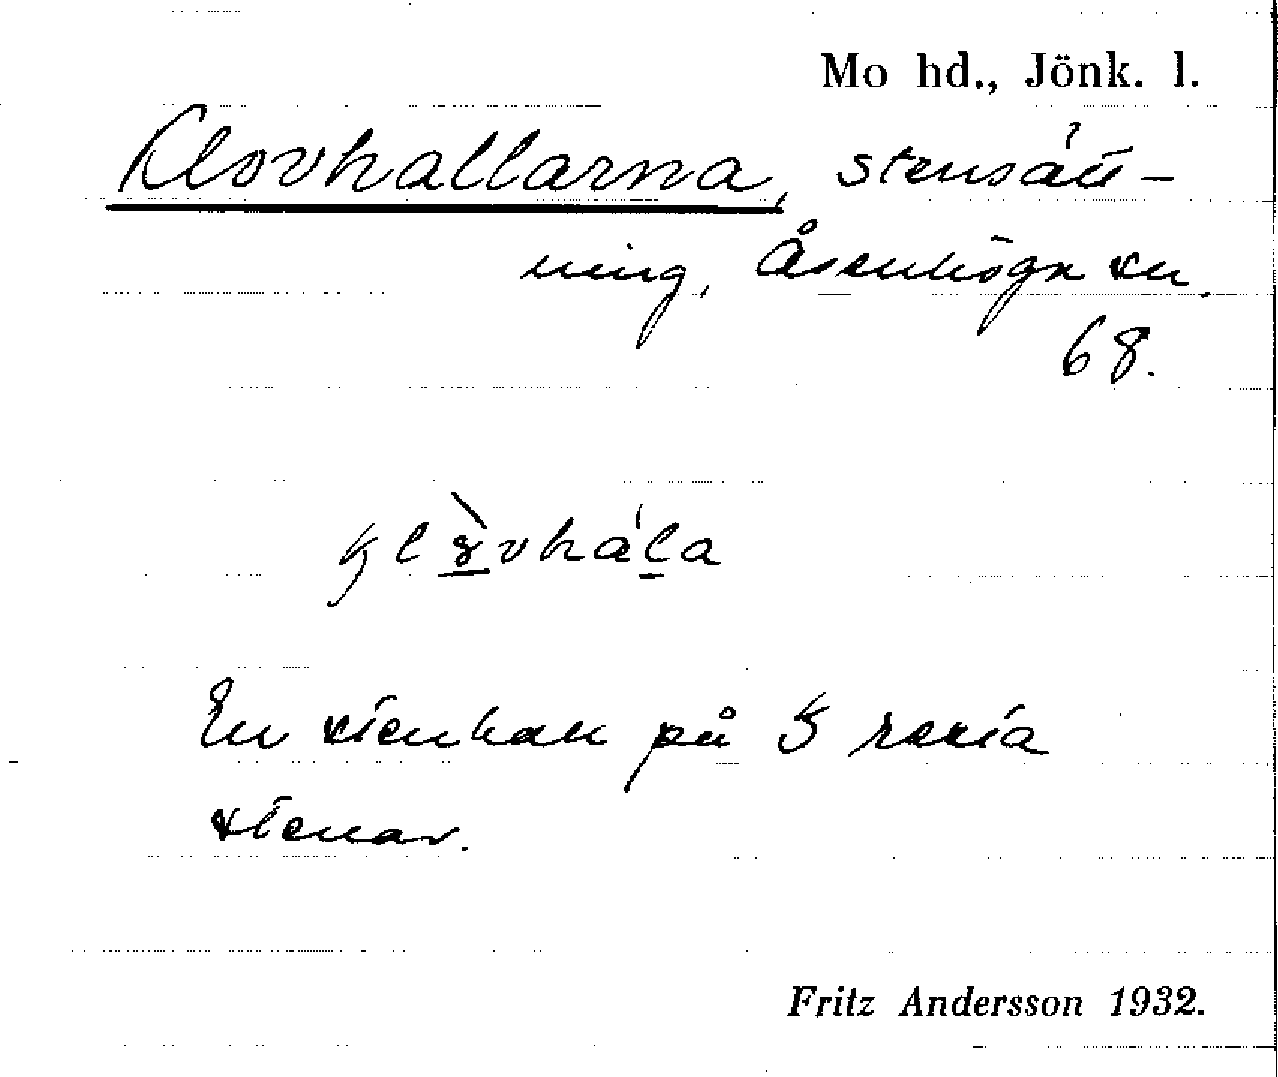 Mo hd., Jönk. l.
Klovhallarna, stensätt-
ning, Åsenhöga sn.
68.
En stenhall på 5 resta
stenar.
Fritz Andersson 1932.